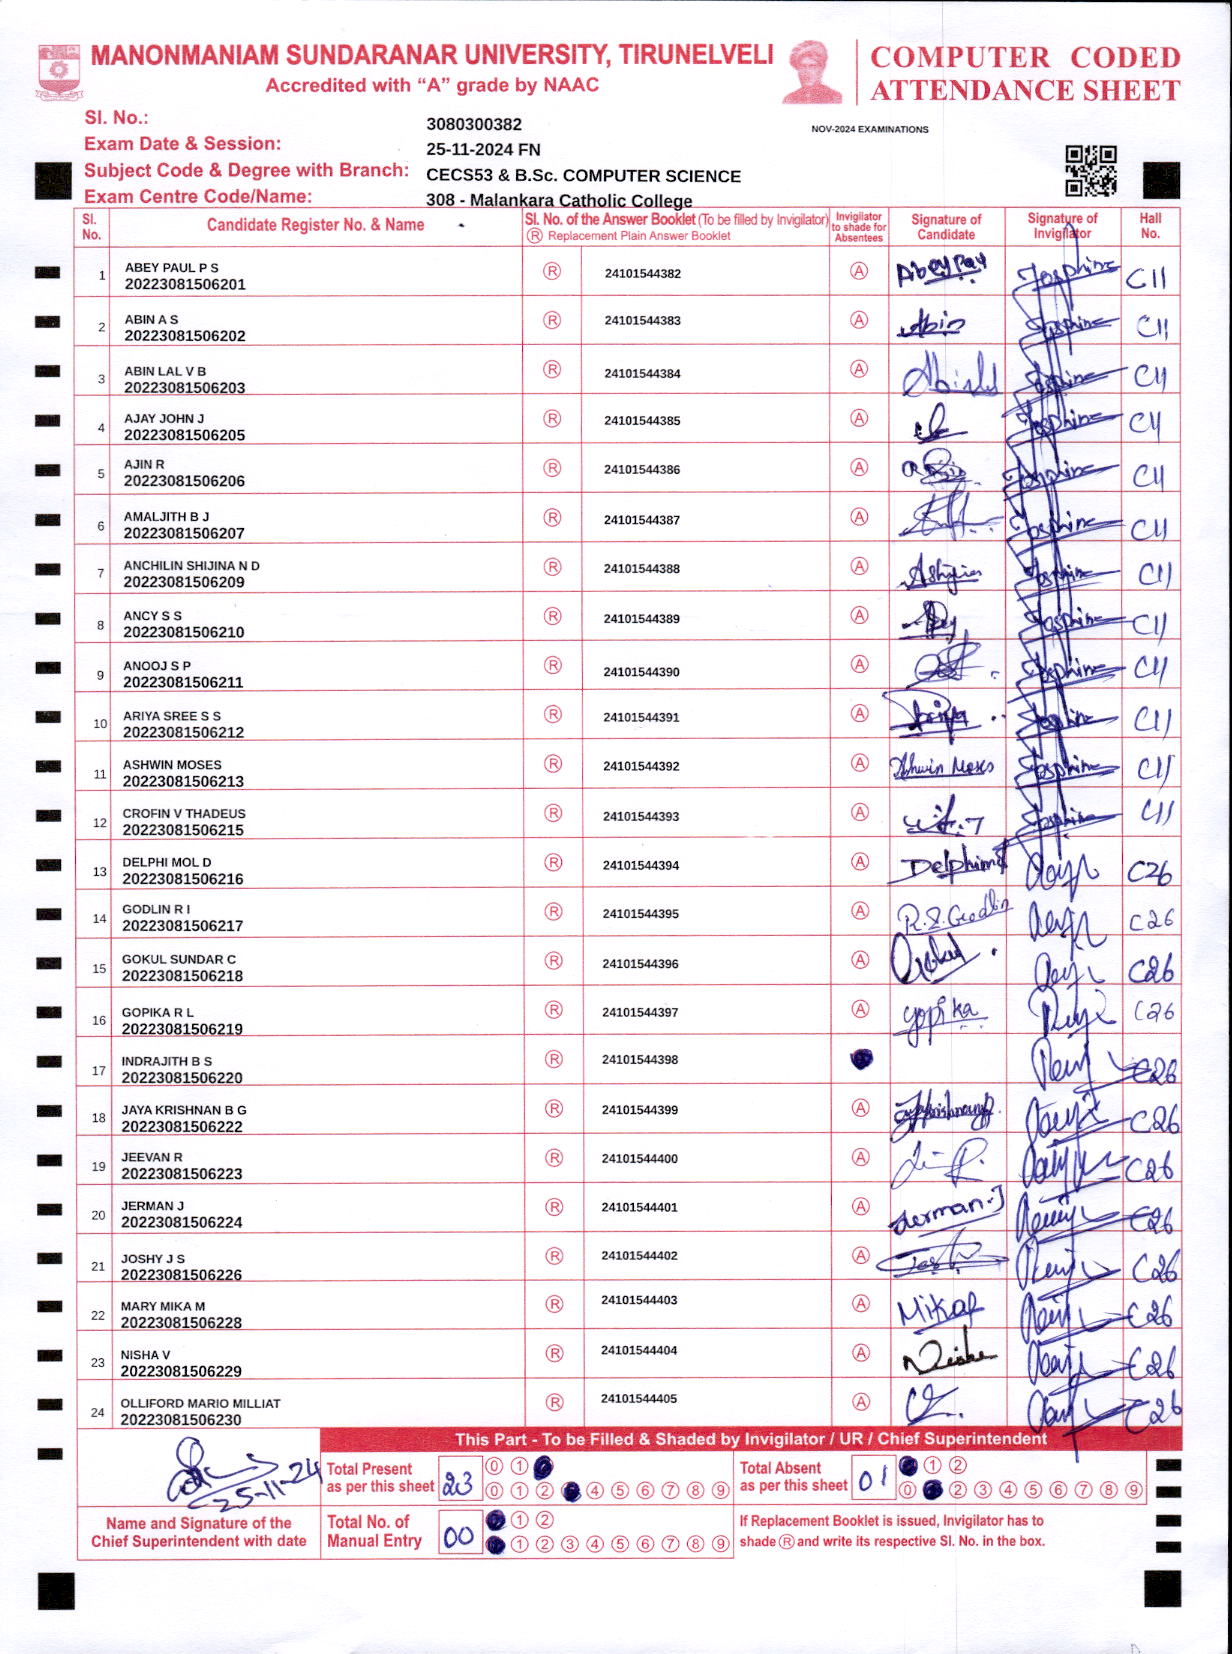 MANONMANIAM SUNDARANAR UNIVERSITY, TIRUNELVELI
Accredited with “A” grade by NAAC
COMPUTER CODED
ATTENDANCE SHEET
Sl. No.: 3080300382
NOV-2024 EXAMINATIONS
Exam Date & Session: 25-11-2024 FN
Subject Code & Degree with Branch: CECS53 & B.Sc. COMPUTER SCIENCE
Exam Centre Code/Name: 308 - Malankara Catholic College
Sl. No. Candidate Register No. & Name Sl. No. of the Answer Booklet (To be filled by Invigilator) Ⓡ Replacement Plain Answer Booklet Invigilator to shade for Absentees Signature of Candidate Signature of Invigilator Hall No.
1 ABEY PAUL P S Ⓡ 24101544382 Ⓐ Josphine C11
20223081506201
2 ABIN A S Ⓡ 24101544383 Ⓐ Abin Josphine C11
20223081506202
3 ABIN LAL V B Ⓡ 24101544384 Ⓐ Josphine C11
20223081506203
4 AJAY JOHN J Ⓡ 24101544385 Ⓐ Josphine C11
20223081506205
5 AJIN R Ⓡ 24101544386 Ⓐ Josphine C11
20223081506206
6 AMALJITH B J Ⓡ 24101544387 Ⓐ Josphine C11
20223081506207
7 ANCHILIN SHIJINA N D Ⓡ 24101544388 Ⓐ Josphine C11
20223081506209
8 ANCY S S Ⓡ 24101544389 Ⓐ Josphine C11
20223081506210
9 ANOOJ S P Ⓡ 24101544390 Ⓐ Josphine C11
20223081506211
10 ARIYA SREE S S Ⓡ 24101544391 Ⓐ Josphine C11
20223081506212
11 ASHWIN MOSES Ⓡ 24101544392 Ⓐ Ashwin Moses Josphine C11
20223081506213
12 CROFIN V THADEUS Ⓡ 24101544393 Ⓐ Josphine C11
20223081506215
13 DELPHI MOL D Ⓡ 24101544394 Ⓐ C26
20223081506216
14 GODLIN R I Ⓡ 24101544395 Ⓐ R.I. Godlin C26
20223081506217
15 GOKUL SUNDAR C Ⓡ 24101544396 Ⓐ Gokul C26
20223081506218
16 GOPIKA R L Ⓡ 24101544397 Ⓐ Gopika C26
20223081506219
17 INDRAJITH B S Ⓡ 24101544398 C26
20223081506220
18 JAYA KRISHNAN B G Ⓡ 24101544399 Ⓐ C26
20223081506222
19 JEEVAN R Ⓡ 24101544400 Ⓐ C26
20223081506223
20 JERMAN J Ⓡ 24101544401 Ⓐ Jerman.J C26
20223081506224
21 JOSHY J S Ⓡ 24101544402 Ⓐ C26
20223081506226
22 MARY MIKA M Ⓡ 24101544403 Ⓐ C26
20223081506228
23 NISHA V Ⓡ 24101544404 Ⓐ Nisha C26
20223081506229
24 OLLIFORD MARIO MILLIAT Ⓡ 24101544405 Ⓐ C26
20223081506230
This Part - To be Filled & Shaded by Invigilator / UR / Chief Superintendent
25-11-24
Total Present as per this sheet 23
0 1
0 1 2 4 5 6 7 8 9
Total Absent as per this sheet 01
1 2
0 2 3 4 5 6 7 8 9
Name and Signature of the
Chief Superintendent with date
Total No. of Manual Entry 00
1 2
1 2 3 4 5 6 7 8 9
If Replacement Booklet is issued, Invigilator has to
shade Ⓡ and write its respective Sl. No. in the box.